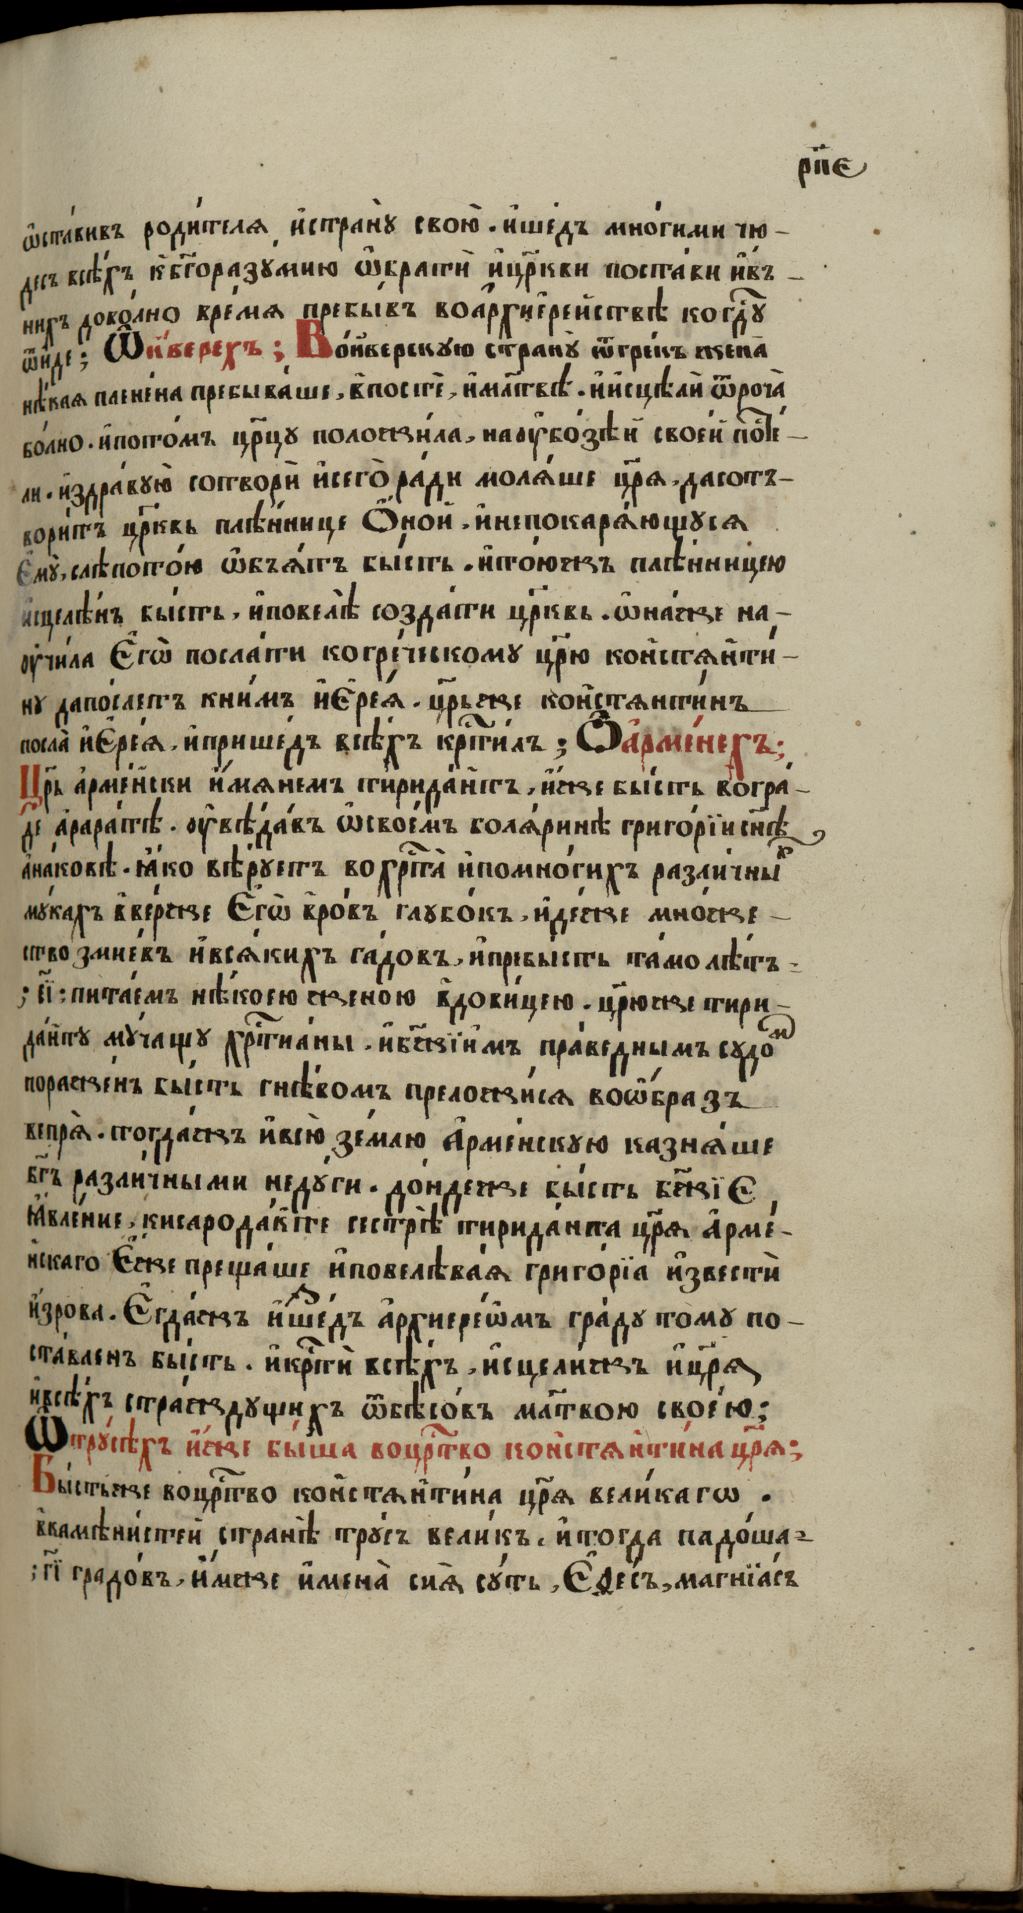 рп҃е
ѡ҆ста́вивъ роди́телѧ и҆странꙋ̀ свою̀. и҆ше́дъ мно́гими чю-
десъ всѣ́хъ к̾бг҃ора́зꙋмию ѡ҆братѝ и҆цр҃кви поста́ви и҆в̾-
нихъ дово́лно вре́мѧ пребы́въ воа҆рхиере́йствѣ ко гдⷭ҇ꙋ
ѿи́де; Ѡ҆и҆́верехъ; Вои҆́верскꙋю странꙋ̀ ѿгре́къ жена̀
нѣ́каѧ плене́на пребыва́ше, в̾постѣ̀, и҆мл҃твѣ. и҆исцѣлѝ ѿроча̀
болно. и҆пото́мъ цр҃цꙋ положи́ла, наѹ҆бо́зѣй свое́й посте-
ли. и҆здра́вꙋю сотворѝ и҆сего̀ ра́ди молѧ́ше цр҃ѧ, да сот-
вори́тъ цр҃ковь плѣ́ннице Ѻ҆́ной, и҆непокарѧ́ющꙋсѧ
Є҆мꙋ̀, слѣпото́ю ѡ҆б̾ѧ́тъ бы́сть. и҆то́южъ плѣ́нницею
и҆сцеле́нъ бы́сть, и҆повелѣ̀ созда́ти цр҃ковь. ѡ҆на́же на-
ѹ҆чи́ла Є҆гѡ̀ посла́ти ко гре́ческомꙋ цр҃ю ко́нстѧнти́-
нꙋ да по́слетъ к ни́мъ и҆Є҆ре́ѧ. цр҃ьже ко́нстѧнти́нъ
посла̀ и҆Є҆ре́ѧ, и҆прише́дъ всѣ́хъ крⷭ҇ти́лъ; Ѡ҆а҆рме́нехъ;
Цр҃ь а҆рме́нски и҆́мѧнемъ тирида́нтъ, и҆́же бы́сть во гра́-
де а҆рара́тѣ. ѹ҆вѣ́давъ ѡ҆свое́мъ болѧ́ринѣ григо́рїи сн҃ѣ
а҆на́ковѣ. ꙗ҆́ко вѣ́рꙋетъ во хрⷭ҇та̀ и҆помно́гихъ разли́чныⷯ
мꙋ́кахъ вве́рже Є҆гѡ̀ в̾ро́въ глꙋбо́къ, и҆де́же мно́же-
ство змие́въ и҆всѧ́кихъ га́довъ, и҆пребы́сть та́мо лѣ́тъ-
; е҃і: пита́емъ нѣ́коею жено́ю в̾дови́цею. цр҃юже тири-
да́нтꙋ мꙋ́чащꙋ хрⷭ҇тиа́ны. и҆бж҃їимъ пра́веднымъ сꙋдоⷨ
пораже́нъ бы́сть гнѣ́вомъ преложи́сѧ воѡ҆́бразъ
ве́прѧ. тогда́жъ и҆всю̀ зе́млю А҆рме́нскꙋю казнѧ́ше
бг҃ъ разли́чными недꙋ́ги. до́ндеже бы́сть бж҃їе
ꙗ҆вле́ние, кисарода́кте сестрѣ̀ тирида́нта цр҃ѧ А҆рме́-
нскаго Є҆́же преща́ше и҆повелѣва́ѧ григо́рїа и҆звестѝ
и҆зро́ва. Є҆гда́жъ и҆зше́дъ а҆рхиере́ѡмъ гра́дꙋ томꙋ по-
ста́вленъ бы́сть. и҆крⷭ҇тѝ всѣ́хъ, и҆сцели́жъ и҆цр҃ѧ̀
и҆всѣ́хъ стра́ждꙋщихъ ѿбѣсо́въ мл҃твою свое́ю;
Ѡ҆трꙋ́сѣхъ и҆́же бы́ша во цр҃ство ко́нстѧнти́на цр҃ѧ̀;
Бы́стьже во цр҃ство ко́нстѧнти́на цр҃ѧ̀ вели́кагѡ.
в̾ка́мѣнистей странѣ̀ трꙋ́съ вели́къ, и҆тогда падо́ша-
; г҃і градо́въ, и҆́мже и҆мена̀ сиѧ̀ сꙋ́ть, Є҆де́съ, магнїа́съ